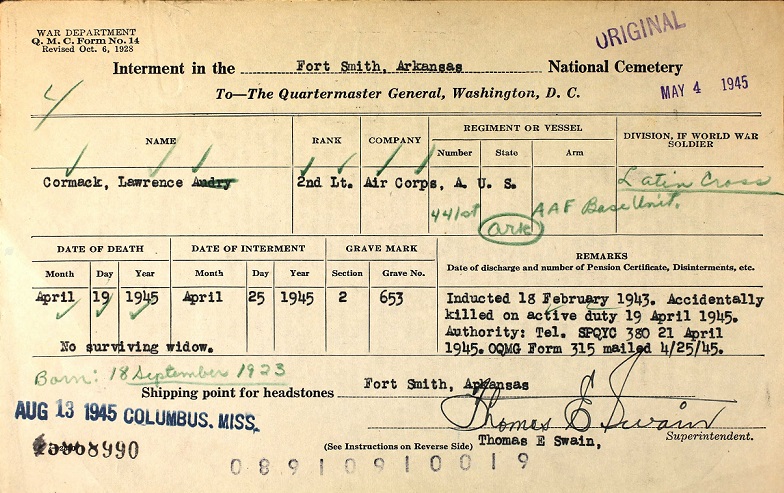 WAR DEPARTMENT
Q. M. C. Form No. 14
Revised Oct. 6, 1928
ORIGINAL
Interment in the Fort Smith, Arkansas National Cemetery
To—The Quartermaster General, Washington, D. C.
MAY 4 1945
4
NAME
RANK
COMPANY
REGIMENT OR VESSEL
Number State Arm
DIVISION, IF WORLD WAR SOLDIER
Cormack, Lawrence Audry 2nd Lt. Air Corps, A. U. S.
Latin Cross
441st Ark AAF Base Unit.
DATE OF DEATH
Month Day Year
DATE OF INTERMENT
Month Day Year
GRAVE MARK
Section Grave No.
REMARKS
Date of discharge and number of Pension Certificate, Disinterments, etc.
April 19 1945 April 25 1945 2 653
Inducted 18 February 1943. Accidentally
killed on active duty 19 April 1945.
Authority: Tel. SPQYC 380 21 April
1945. OQMG Form 315 mailed 4/25/45.
No surviving widow.
Born: 18 September 1923
Shipping point for headstones Fort Smith, Arkansas
AUG 13 1945 COLUMBUS, MISS.
Thomas E Swain
Thomas E Swain, Superintendent.
(See Instructions on Reverse Side)
8990
08910910019